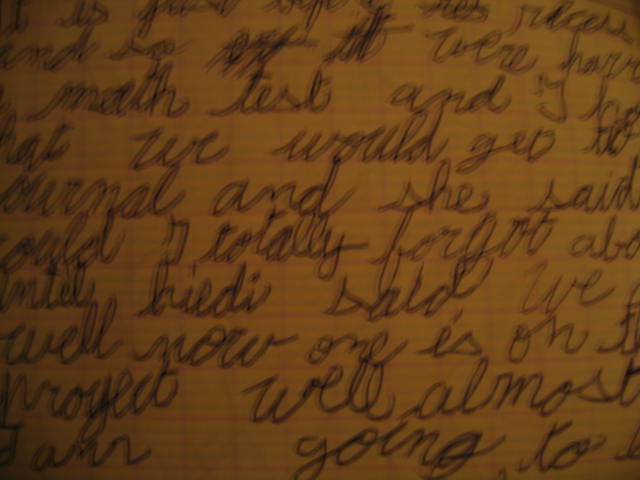 is just
and so it were
math test and I
hat we would get to
ournal and she said
ould I totally forgot abo
until hiedi said we
well now one is on
proyect well almost
I am going to